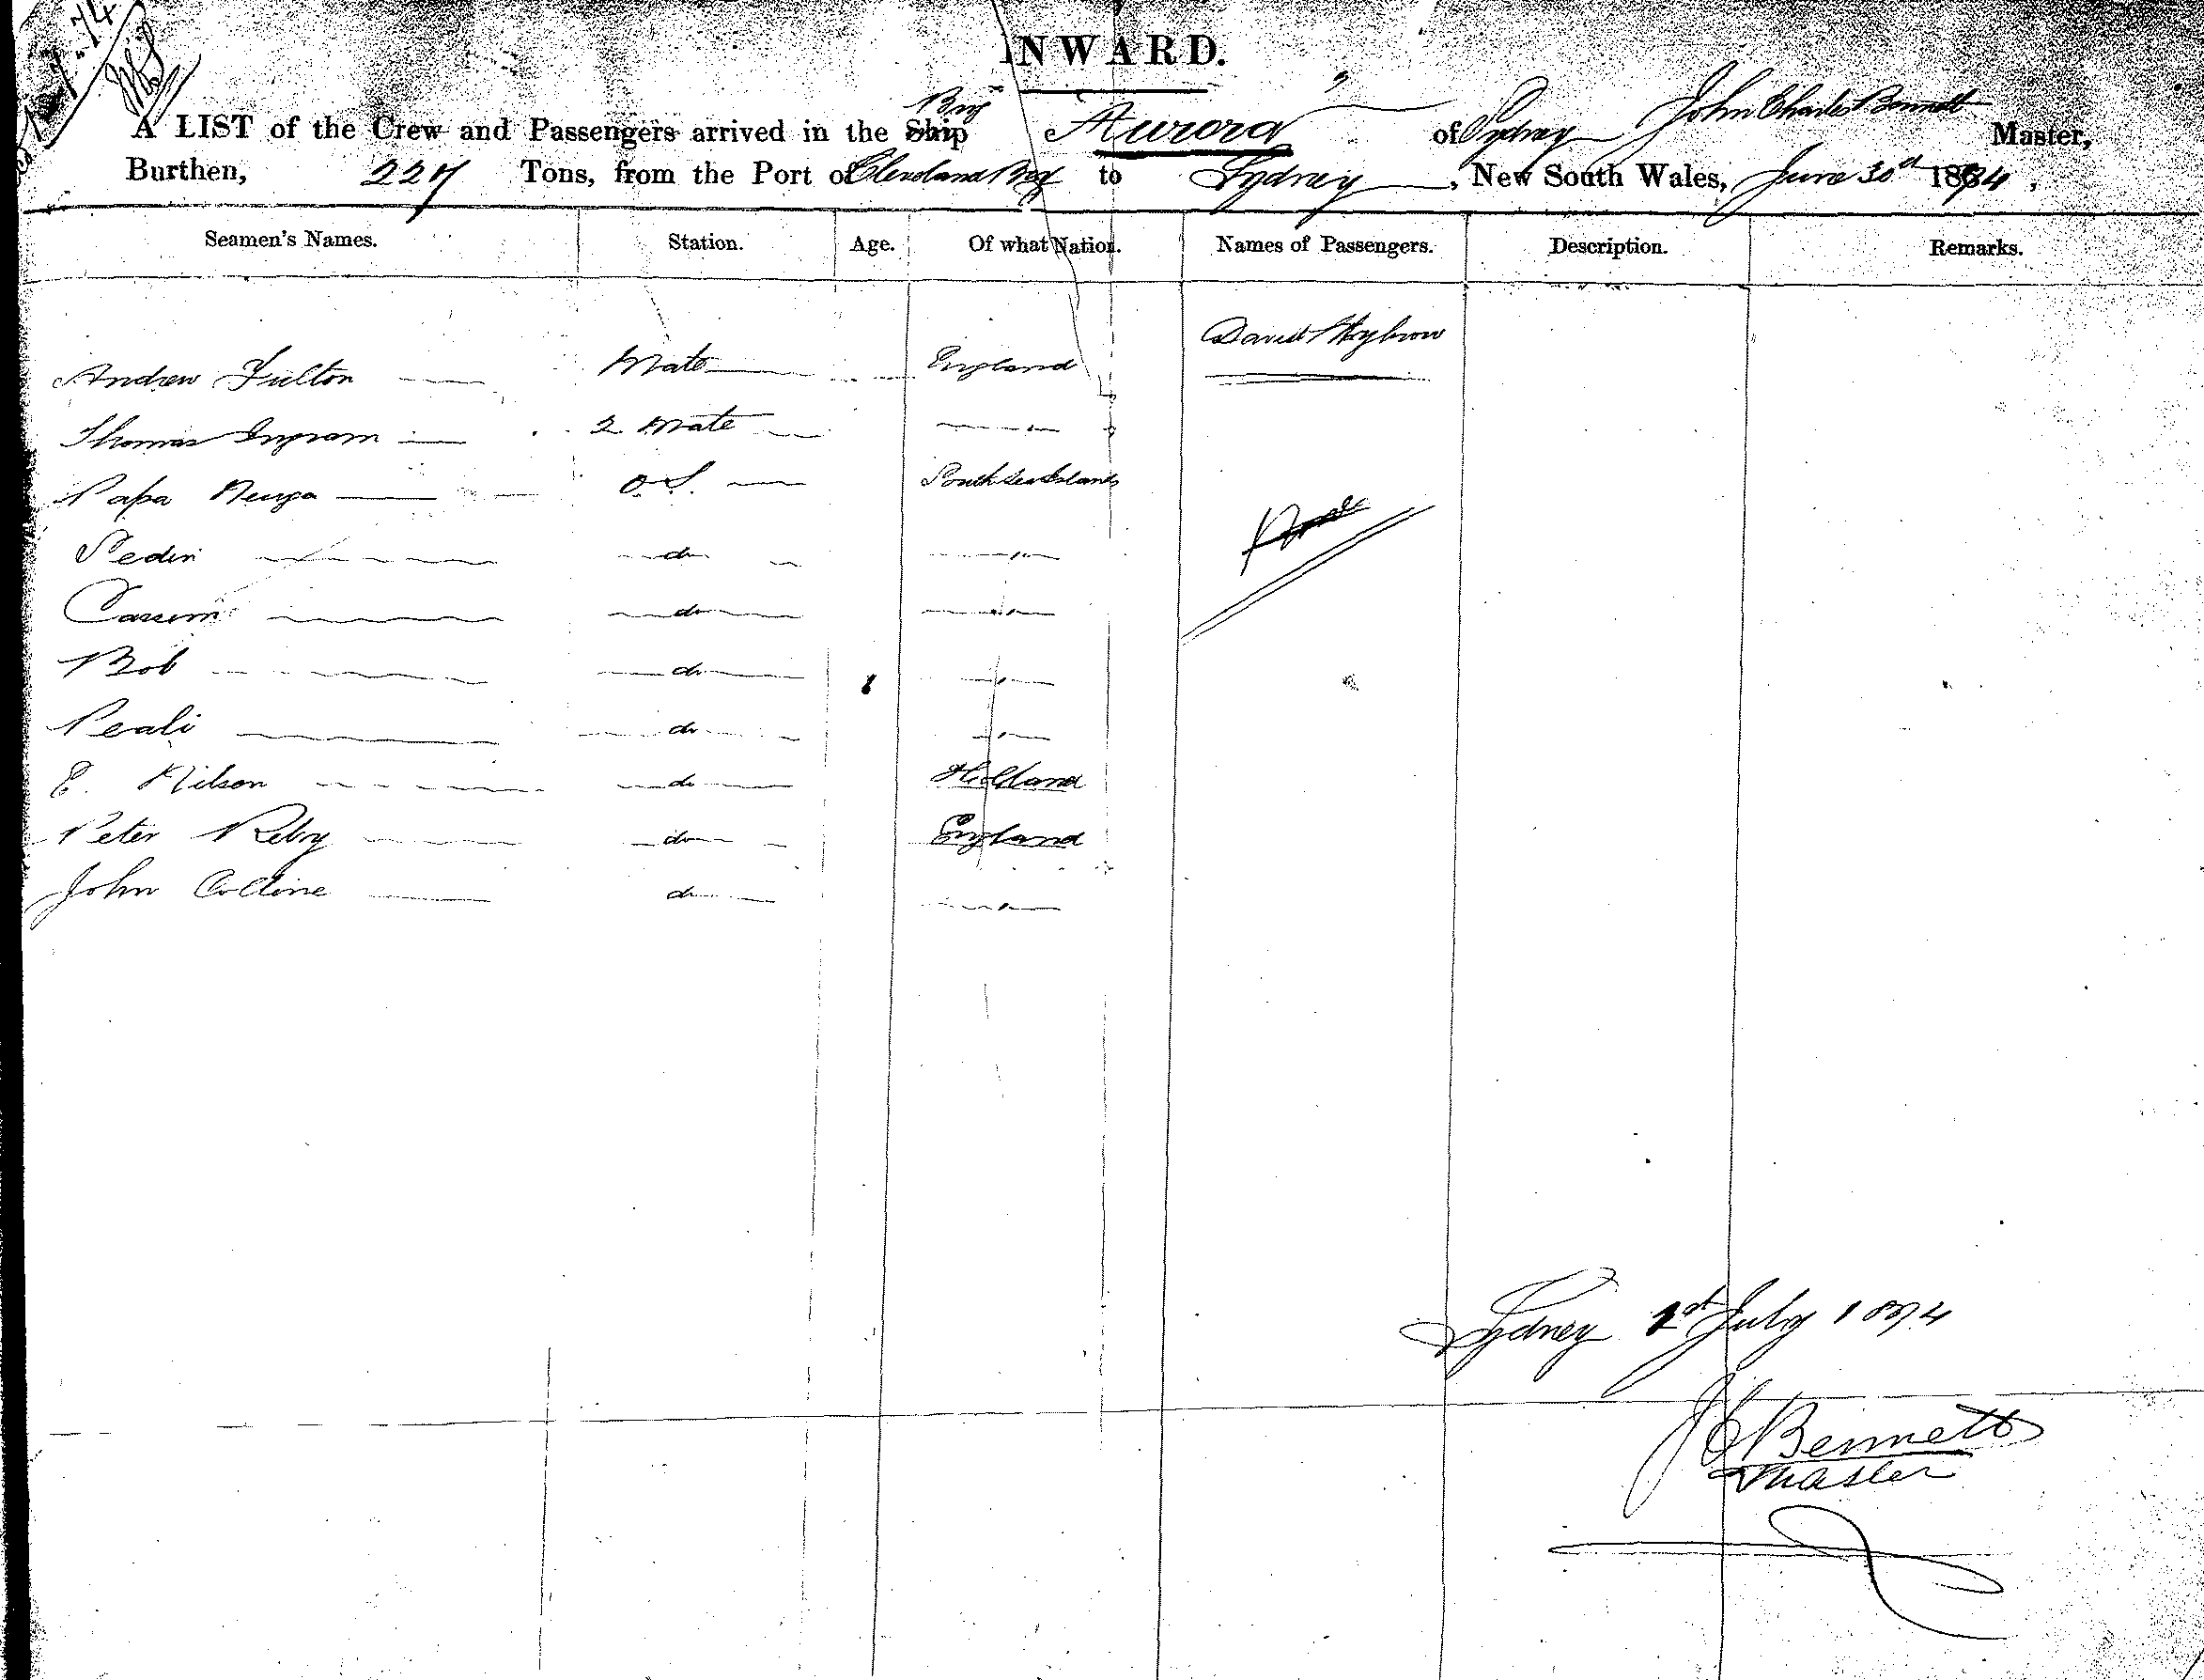 INWARD.
Brig
A LIST of the Crew and Passengers arrived in the Ship Aurora of Sydney John Charles Bennett Master,
Burthen, 227 Tons, from the Port of Cleveland Bay to Sydney, New South Wales, June 30th 1874,
Seamen's Names. Station. Age. Of what Nation. Names of Passengers. Description. Remarks.
David
Andrew Fulton Mate England
Thomas Ingram 2 Mate "
Papa O.S. South Sea Islands
do "
do "
Bob do "
Peali do "
E. Nilson do Holland
Peter do England
John Colline do "
Sydney 1st July 1874
J C Bennett
Master